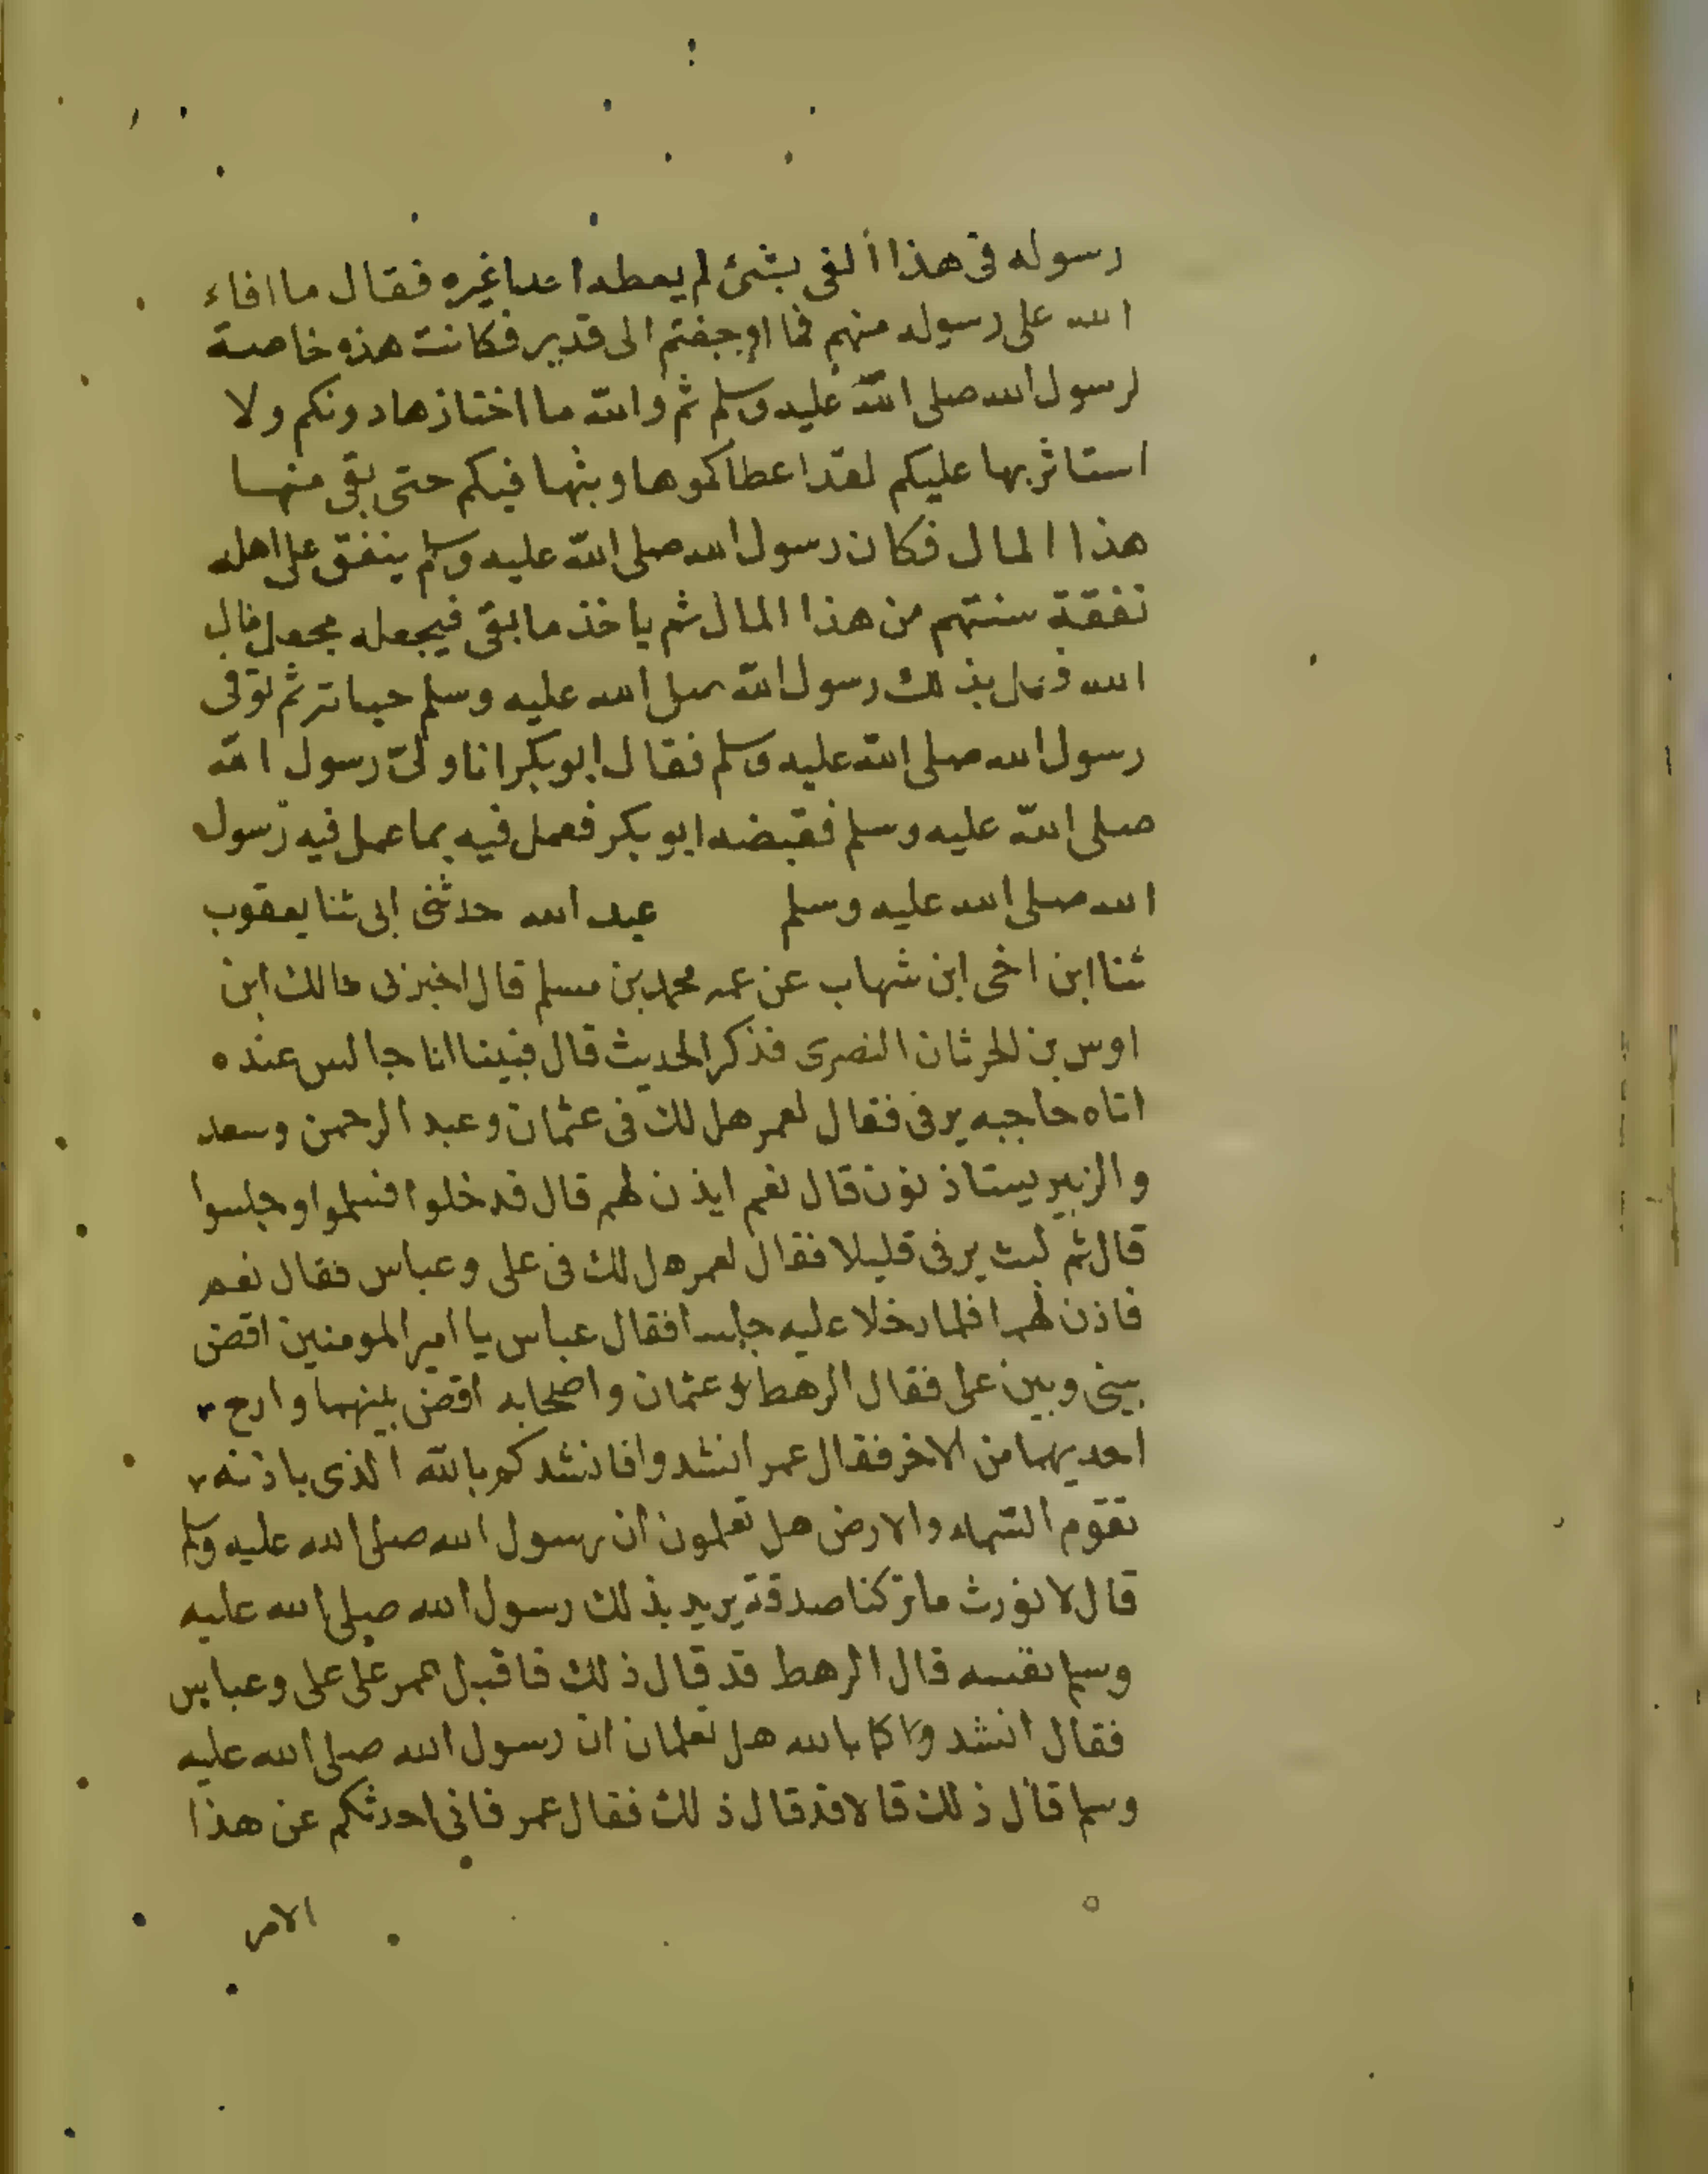 رسوله فى هذا الفى بشئ لم يعطه احدا غيره فقال ما افاء
الله على رسوله منهم فما اوجفتم الى قدير فكانت هذه خاصة
لرسول الله صلى الله عليه وسلم ثم والله ما اختازها دونكم ولا
استاثر بها عليكم لقد اعطاكموها وبثها فيكم حتى بقى منها
هذا المال فكان رسول الله صلى الله عليه وسلم ينفق على اهله
نفقة سنتهم من هذا المال ثم ياخذ ما بقى فيجعله مجعل مال
الله فعمل بذلك رسول الله صلى الله عليه وسلم حياته ثم توفى
رسول الله صلى الله عليه وسلم فقال ابو بكر انا ولى رسول الله
صلى الله عليه وسلم فقبضه ابو بكر فعمل فيه بما عمل فيه رسول
الله صلى الله عليه وسلم عبد الله حدثنى ابى ثنا يعقوب
ثنا ابن اخى ابن شهاب عن عمه محمد بن مسلم قال اخبرنى مالك ابن
اوس بن الحرثان النصرى فذكر الحديث قال فبينا انا جالس عنده
اتاه حاجبه يرفى فقال لعمر هل لك فى عثمان وعبد الرحمن وسعد
والزبير يستاذنون قال نعم ايذن لهم قال فدخلوا فسلموا وجلسوا
قال ثم لبث يرفى قليلا فقال لعمر هل لك فى على وعباس فقال نعم
فاذن لهما فلما دخلا عليه جلسا فقال عباس يا امير المومنين اقض
بينى وبين على فقال الرهط عثمان واصحابه اقض بينهما وارح
احديهما من الاخر فقال عمر اتشدوا فانشدكم بالله الذى باذنه
تقوم السماء والارض هل تعلمون ان رسول الله صلى الله عليه وسلم
قال لا نورث ما تركنا صدقة يريد بذلك رسول الله صلى الله عليه
وسلم نفسه قال الرهط قد قال ذلك فاقبل عمر على على وعباس
فقال انشد كما بالله هل تعلمان ان رسول الله صلى الله عليه
وسلم قال ذلك قالا قد قال ذلك فقال عمر فانى احدثكم عن هذا
الامر